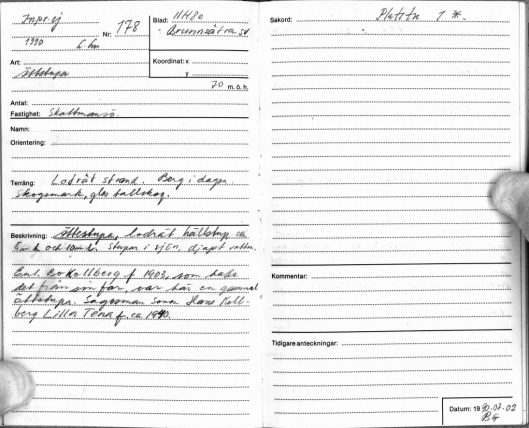 Inprej
1990
Nr: 178
Blad: 11H8e
Brunnsätra
Art:
Ättestupa
Koordinat: x
y
70 m.ö.h.
Antal:
Fastighet: Skattmansö.
Namn:
Orientering:
Terräng: Lodrät strand. Berg i dagen.
Skogsmark, gles tallskog.
Beskrivning: Ättestupa, lodrät hällstup ca
5 m h och 10 m br. Stupar i sjön, djupt vatten.
Enl. Kollberg f 1903, som hade
det från sin far, var här en gammal
ättestupa. Sagesman Hans Koll-
berg Lilla f. ca 1940.
Sakord: Platstn 1 *.
Kommentar:
Tidigare anteckningar:
Datum: 1990.07.02
BG